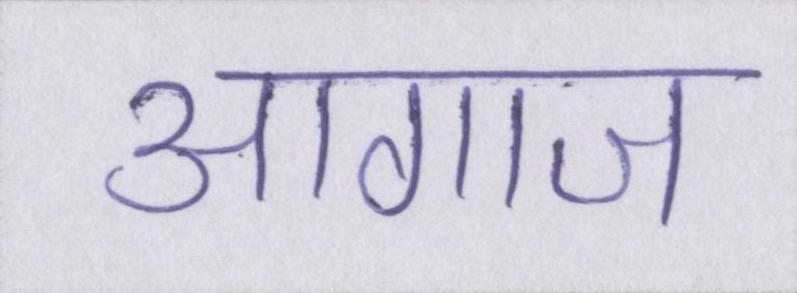 आगाज